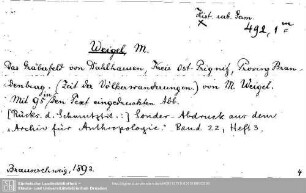 Hist. urb. Germ.
492, 1 m
Weigel, M.
Das Gräberfeld von Dahlhausen, Kreis Ost-Prignitz, Provinz Bran-
denburg. (Zeit der Völkerwanderungen.) von M. Weigel.
Mit 95 in den Text eingedruckten Abb.
[Rücks. d. Schmutztit.:] Sonder-Abdruck aus dem
„Archiv für Anthropologie" Band 22, Heft 3.
Braunschweig, 1893.